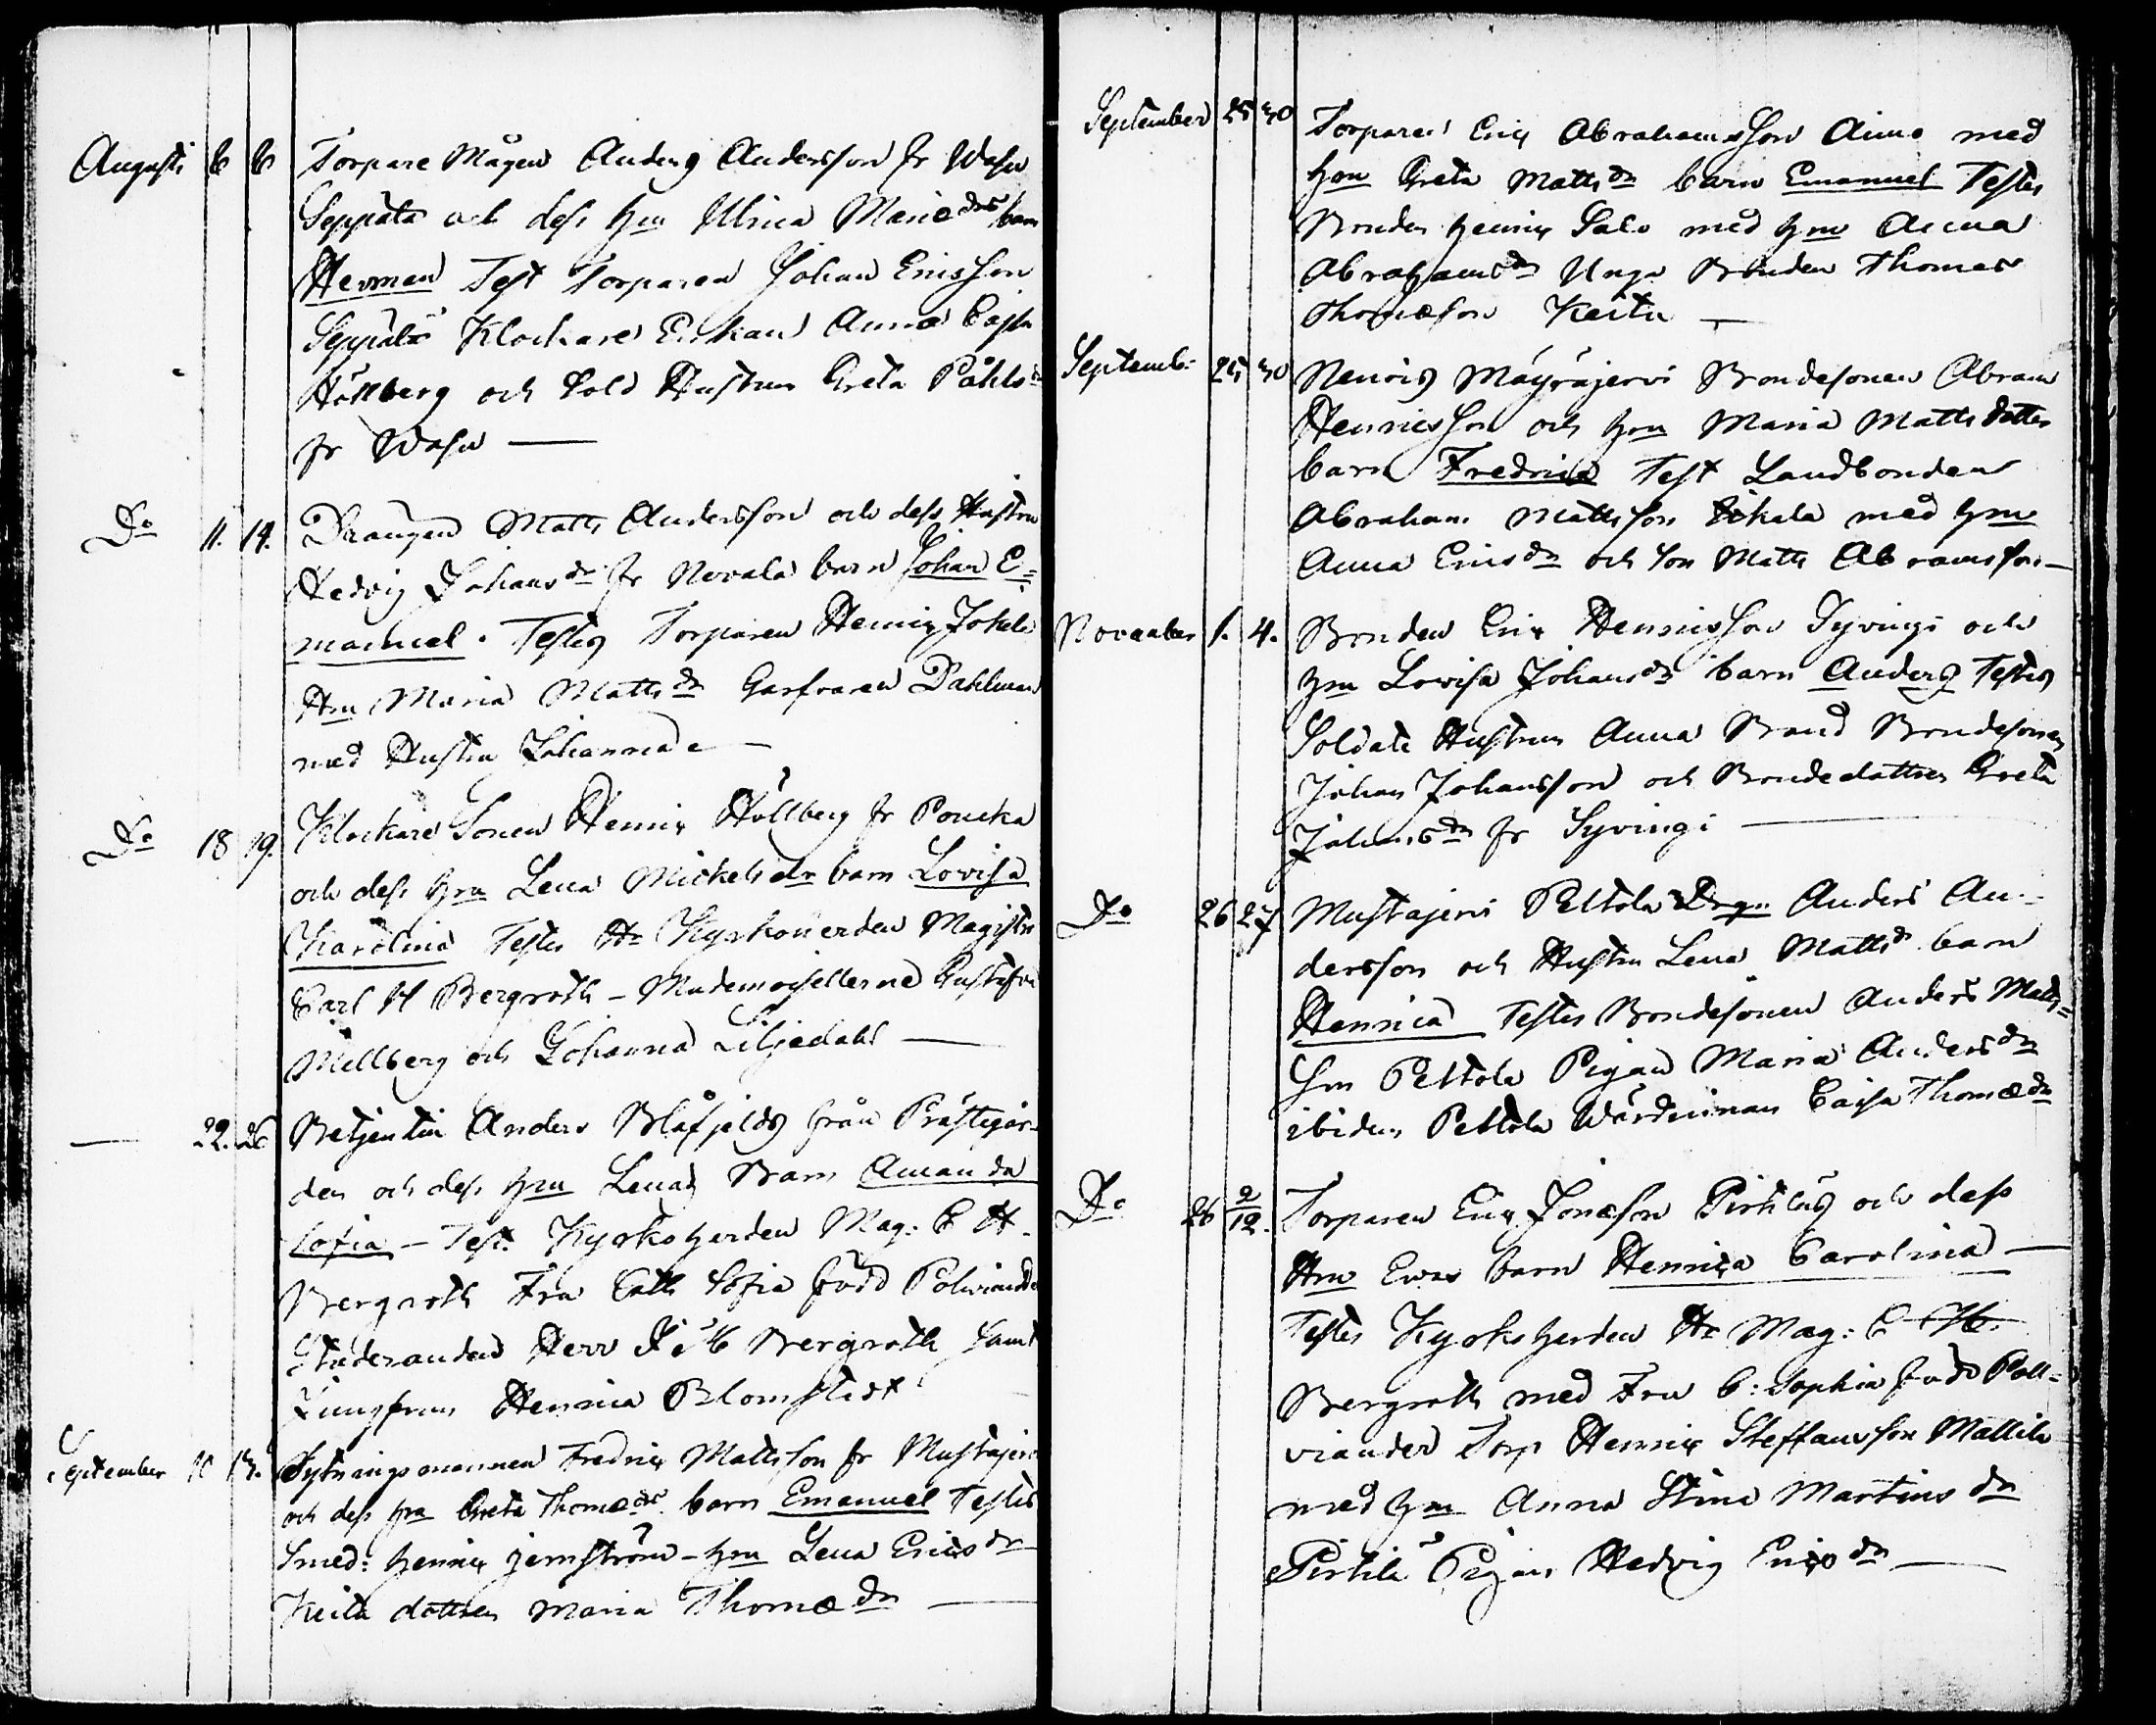 Augusti 6 6 Torpare Mågen Anders Andersson fr Wasu
Seppälä och dess Hru Ulrica Mariædr barn
Herman Test Torparen Johan Ericsson
Seppälä Klockare Enkan Anna Cajsa
Hållberg och Sold Hustrun Greta Påhlsdr
fr Wasu —
Do 11. 14. Drängen Matts Andersson och dess Hustru
Hedvig Johansdr fr Norala barn Johan E=
manuel. Testes Torparen Henrix Jokela
Hru Maria Mattsdr Garfvaren Dahlman
med Hustru Johanna —
Do 18 19. Klockare Sonen Henrix Hållberg fr Poucka
och dess Hru Lena Mickelsdr barn Lovisa
Karolina Testes Hr Kyrkoherden Magistr
Carl H Bergroth – Mademoisellerne Gustafva
Mellberg och Johanna Liljedahl —
— 22. 26 Betjenten Anders Blåfjeld från Prästegår-
den och dess Hru Lena Barn Amanda
Sofia – Test. Kyrkoherden Mag: C H.
Bergroth Fru Cath Sofia född Polviander
Studeranden Herr J M Bergroth samt
Jungfrun Henrica Blomstedt
September 10 13. Sytningsmannen Fredrix Mattsson fr Mustajervi
och dess Hru Greta Thomædr barn Emanuel Testes
Smed: Henrix Jernström – Hru Lena Ericsdr
Keitu dottren Maria Thomædr —
September 25 30 Torparen Erix Abrahamsson Aimo med
Hru Greta Mattsdr barn Emanuel Testes
Bonden Henrix Salo med Hru Anna
Abrahamsdr Unga Bonden Thomas
Thomæson Keitu —
Septemb: 25 30 Nenois Mäyräjervi Bondesonen Abram
Henricsson och Hru Maria Mattsdotter
barn Fredrica Test Landbonden
Abraham Mattsson Tokala med Hru
Anna Ericsdr och Son Matts Abramsson —
November 1. 4. Bonden Erix Henricsson Syvingi och
Hru Lovisa Johansdr barn Anders Testes
Soldate Hustrun Anna Brand Bondesonen
Johan Johansson och Bondedottren Greta
Johansdr fr Syvingi —
Do 26 27 Mustajervi Peltola Drgn Anders An-
dersson och Hustru Lena Mattsdr barn
Henrica Testes Bondesonen Anders Matts=
son Peltola Pigan Maria Andersdr
ibidem Peltola Wärdinnan Caisa Thomædr
Do 26 2/12. Torparen Erix Jonæson Pirtilä och dess
Hru Ewa barn Henrica Carolina —
Testes Kyrkoherden Hr Mag: C H.
Bergroth med Fru C: Sophia född Poll=
viander Torp Henrix Steffansson Mattila
med Hru Anna Stina Martinsdr
Pirtilä Pigan Hedvig Ericsdr —